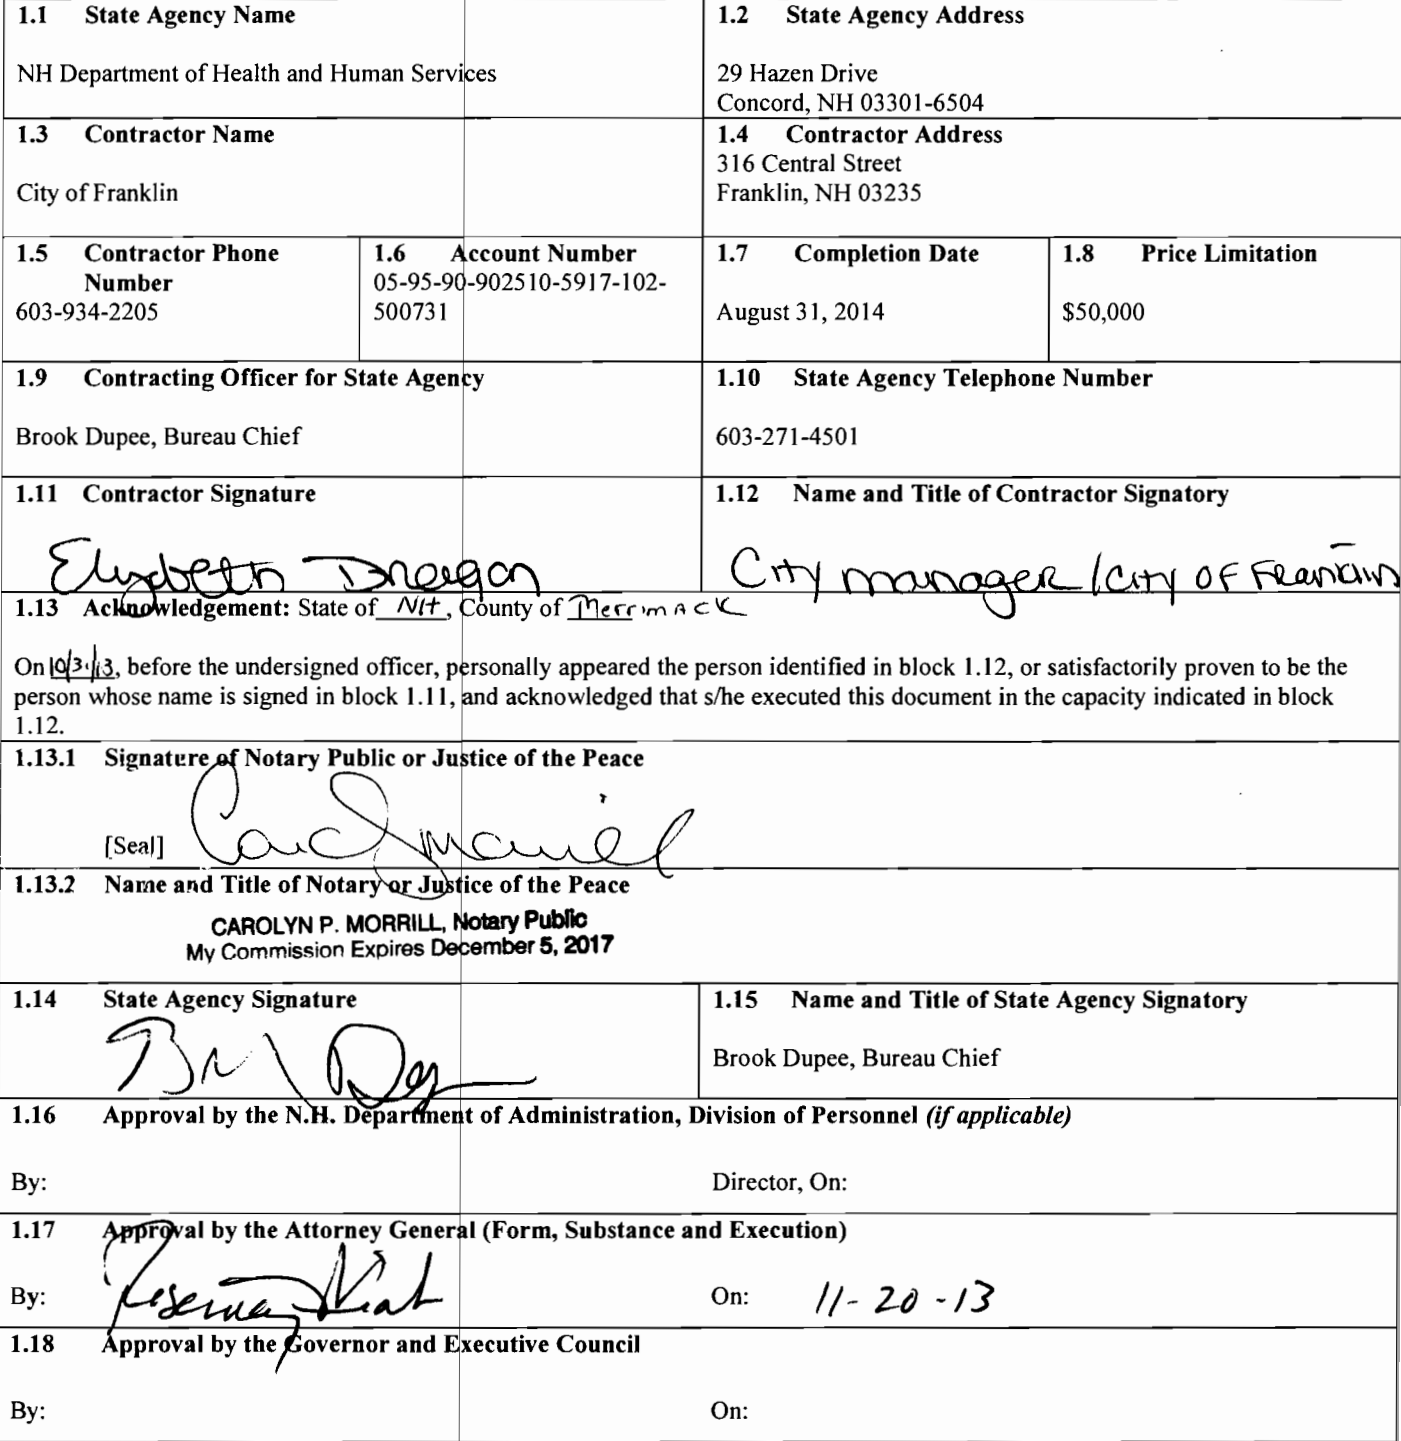 1.1 State Agency Name
NH Department of Health and Human Services
1.2 State Agency Address
29 Hazen Drive
Concord, NH 03301-6504
1.3 Contractor Name
City of Franklin
1.4 Contractor Address
316 Central Street
Franklin, NH 03235
1.5 Contractor Phone
Number
603-934-2205
1.6 Account Number
05-95-90-902510-5917-102-
500731
1.7 Completion Date
August 31, 2014
1.8 Price Limitation
$50,000
1.9 Contracting Officer for State Agency
Brook Dupee, Bureau Chief
1.10 State Agency Telephone Number
603-271-4501
1.11 Contractor Signature
Elizabeth Dragon
1.12 Name and Title of Contractor Signatory
City manager / City of Franklin
1.13 Acknowledgement: State of NH, County of Merrimack
On , before the undersigned officer, personally appeared the person identified in block 1.12, or satisfactorily proven to be the
person whose name is signed in block 1.11, and acknowledged that s/he executed this document in the capacity indicated in block
1.12.
1.13.1 Signature of Notary Public or Justice of the Peace
[Seal]
1.13.2 Name and Title of Notary or Justice of the Peace
CAROLYN P. MORRILL, Notary Public
My Commission Expires December 5, 2017
1.14 State Agency Signature
1.15 Name and Title of State Agency Signatory
Brook Dupee, Bureau Chief
1.16 Approval by the N.H. Department of Administration, Division of Personnel (if applicable)
By: Director, On:
1.17 Approval by the Attorney General (Form, Substance and Execution)
By: On: 11-20-13
1.18 Approval by the Governor and Executive Council
By: On: